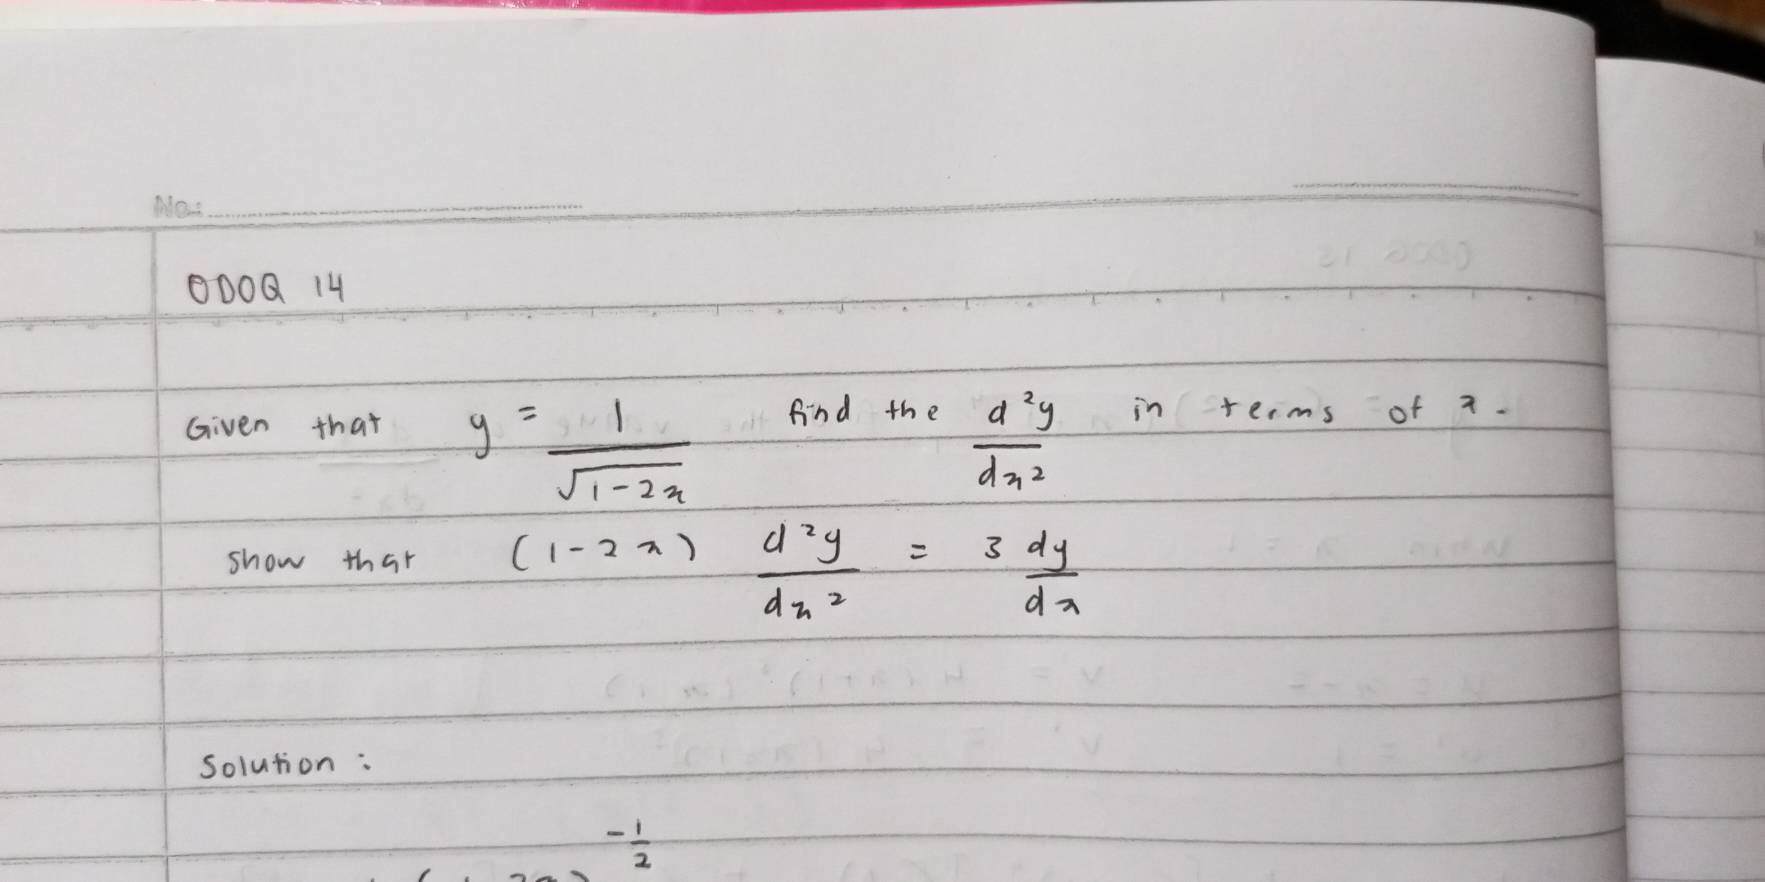 No:
ODOQ 14
Given that y = 1/√(1-2x) find the d²y/dx² in terms of x.
show that (1-2x) d²y/dx² = 3 dy/dx
Solution :
-1/2